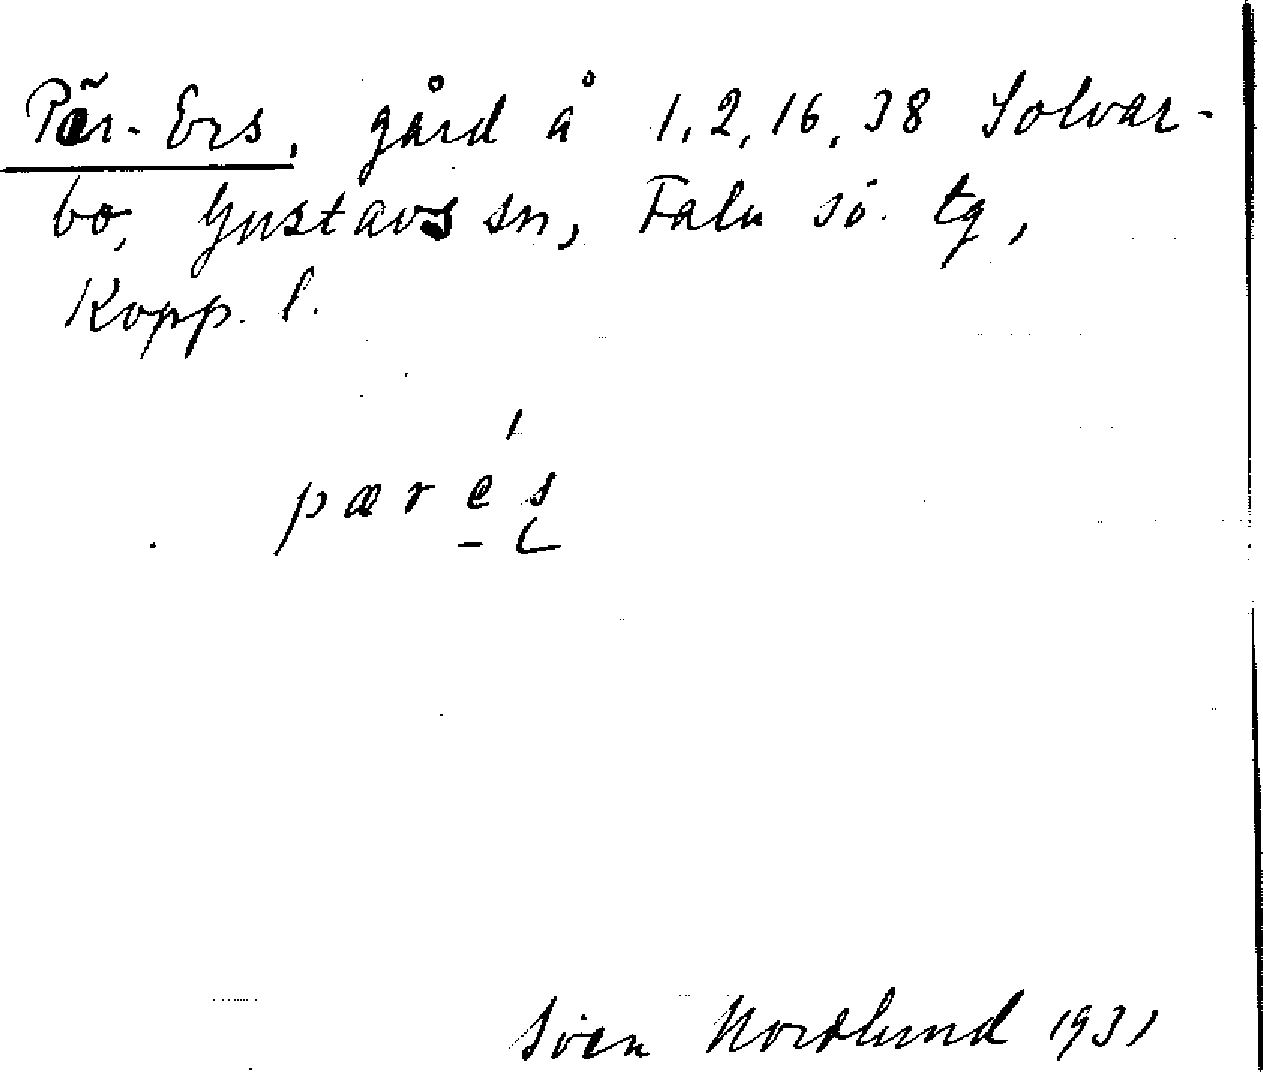 Pär-Ers, gård å 1, 2, 16, 38 Solvar-
bo, Gustavs sn, Falu sö. tg,
Kopp. l.
pærés
Sven Nordlund 1931